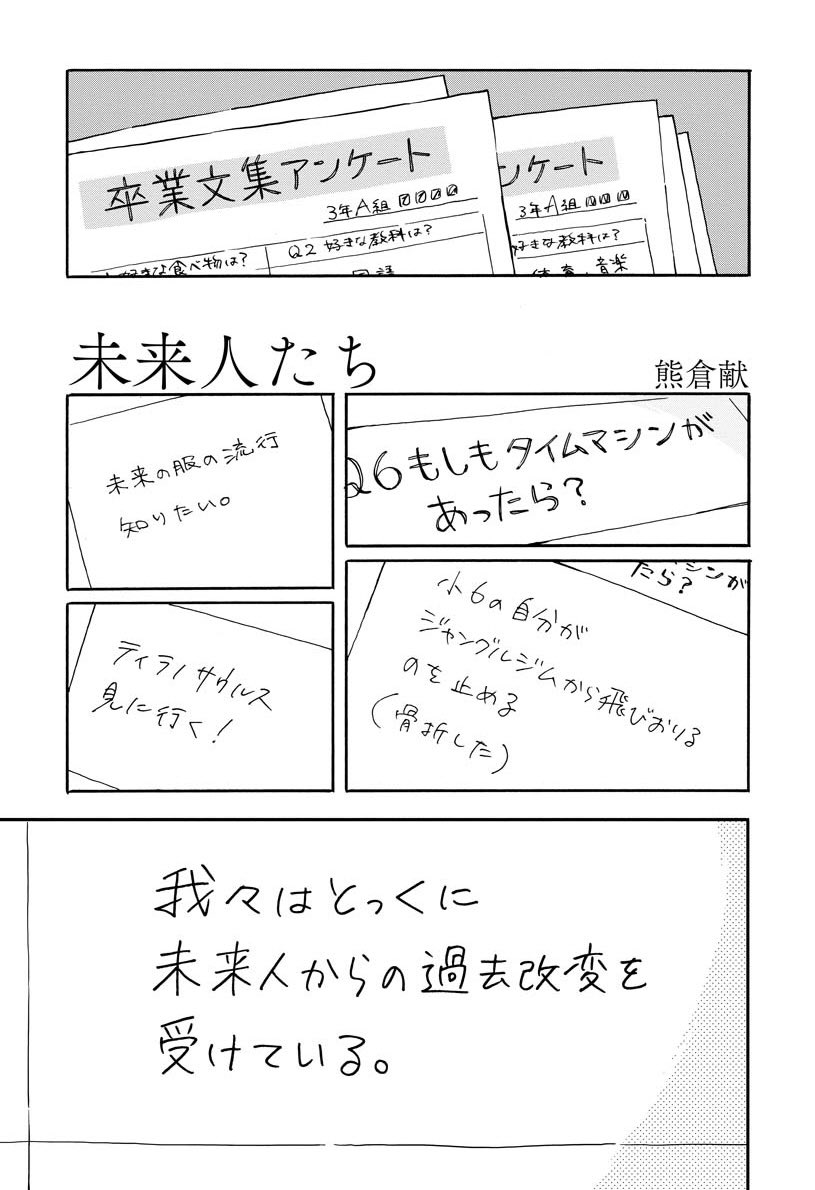 卒業文集アンケート
3年A組
好きな食べ物は?
Q2 好きな教科は?
国語
ンケート
3年A組
好きな教科は?
体育、音楽
未来人たち
熊倉献
Q6もしもタイムマシンが
あったら?
未来の服の流行
知りたい。
シンが
たら?
小6の自分が
ジャングルジムから飛びおりる
のを止める
(骨折した)
ティラノサウルス
見に行く!
我々はとっくに
未来人からの過去改変を
受けている。